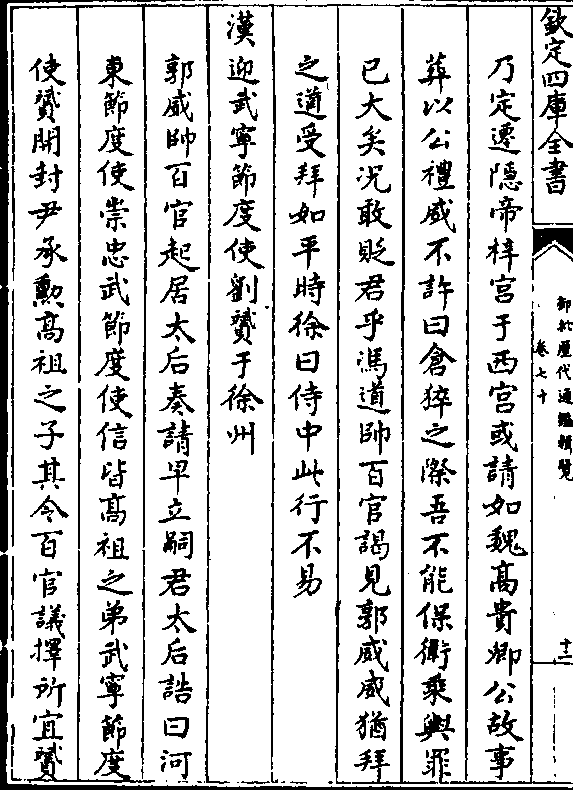 欽定四庫全書
御批歷代通鑑輯覽
卷七十
十二
乃定遷隱帝梓宮于西宮或請如魏高貴鄉公故事
葬以公禮威不許曰倉猝之際吾不能保衛乘輿罪
已大矣況敢貶君乎馮道帥百官謁見郭威威猶拜
之道受拜如平時徐曰侍中此行不易
漢迎武寧節度使劉贇于徐州
郭威帥百官起居太后奏請早立嗣君太后誥曰河
東節度使崇忠武節度使信皆髙祖之弟武寧節度
使贇開封尹承勲髙祖之子其令百官議擇所宜贇